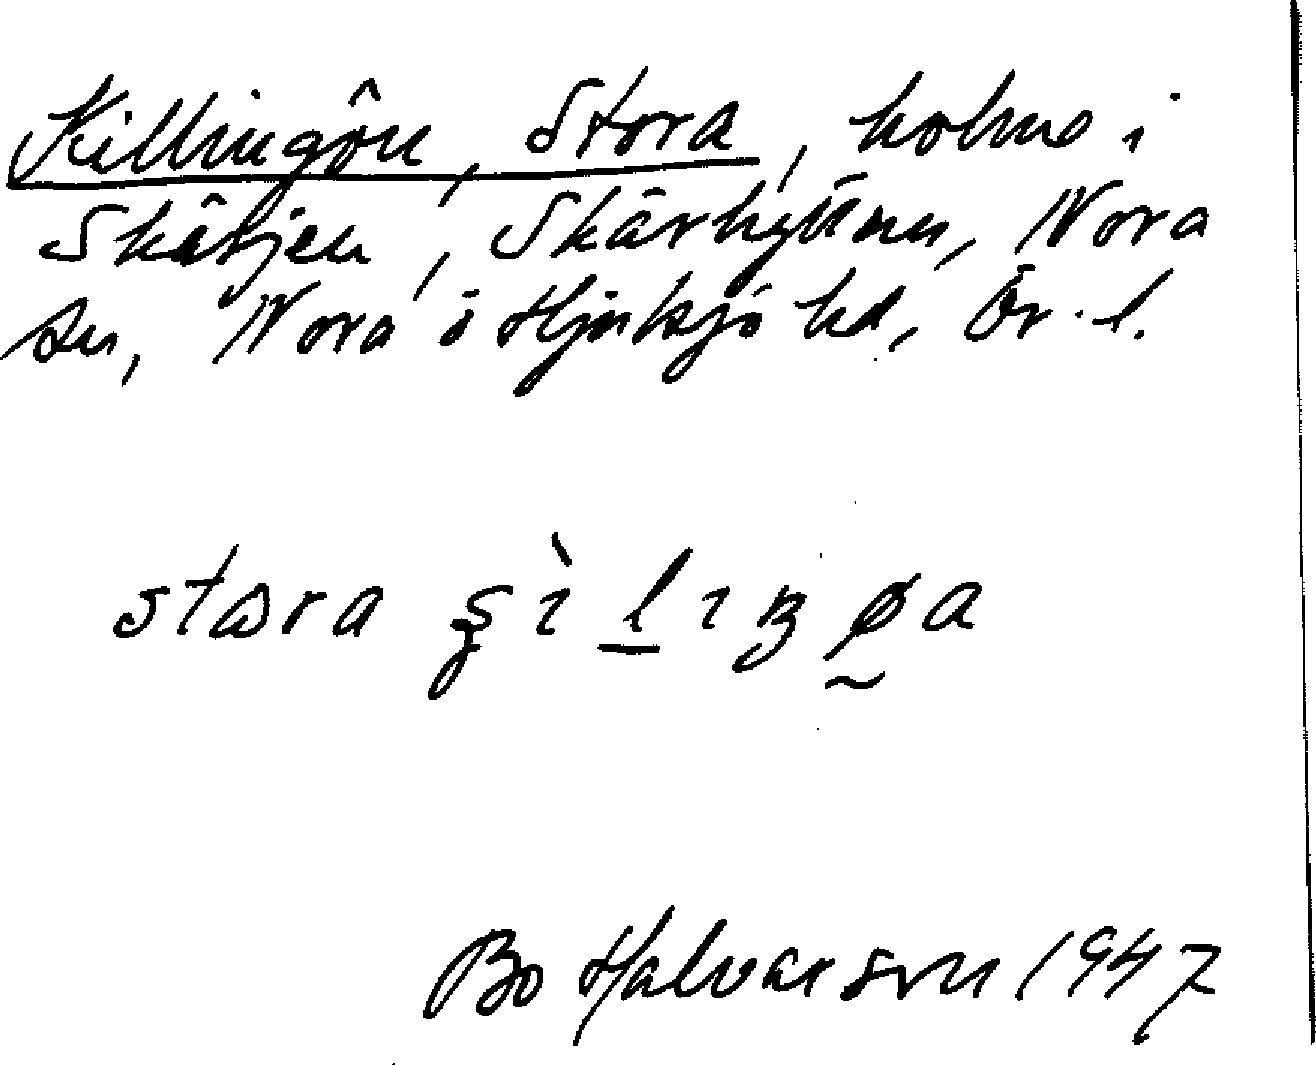 Killingön, Stora, holme i
Skärjen, Skärhyttan, Nora
sn, Nora o Hjulsjö hd, Ör. l.
stora
Bo Halvarson 1947